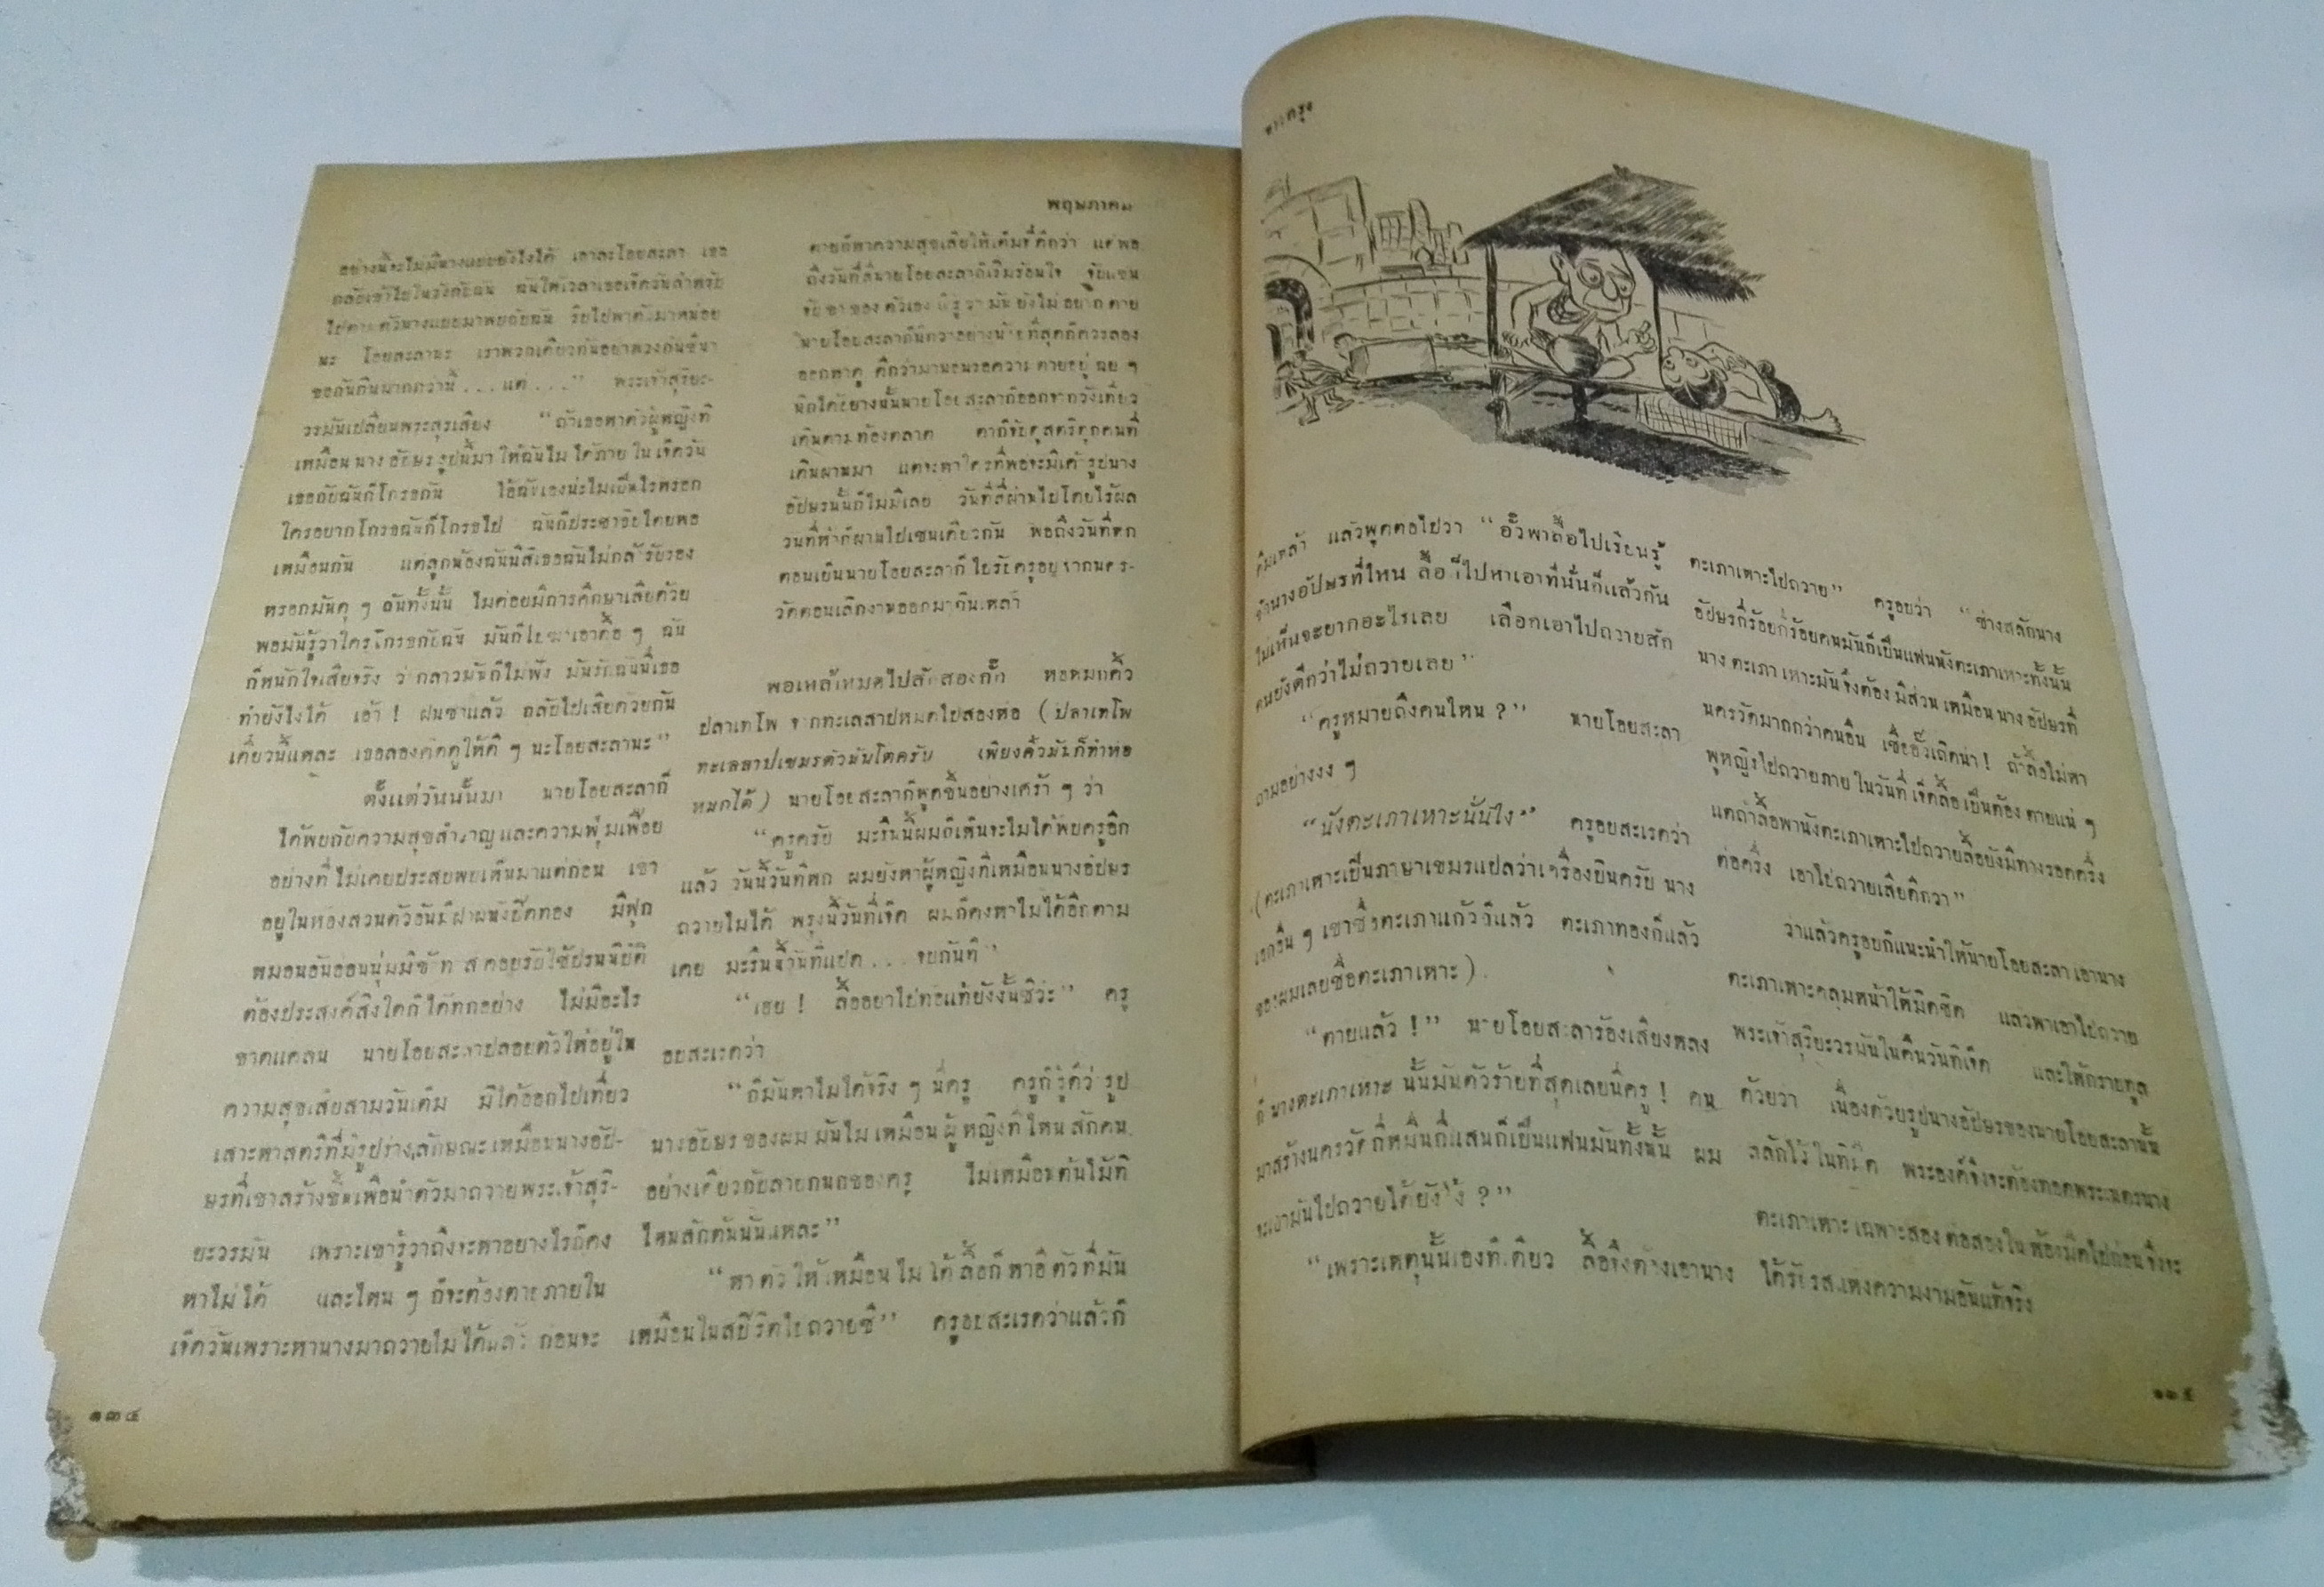 พฤษภาคม
อย่างนี้จะไม่มีนางแบบยังไงได้ เอาละโอยสะลา เธอ
กลับเข้าไปในวังกับฉัน ฉันให้เวลาเธอเจ็ดวันสำหรับ
ไปตามตัวนางแบบมาพบกับฉัน รีบไปพาตัวมาหน่อย
นะ โอยสะลานะ เราพวกเดียวกันอย่าหวงกันซีน่า
ขอกันกินมากกว่านี้...แต่...” พระเจ้าสุริยะ-
วรมันเปลี่ยนพระสุรเสียง “ถ้าเธอหาตัวผู้หญิงที่
เหมือนนางอัปษรรูปนี้มาให้ฉันไม่ได้ภายในเจ็ดวัน
เธอกับฉันก็โกรธกัน ไอ้ฉันเองน่ะไม่เป็นไรหรอก
ใครอยากโกรธฉันก็โกรธไป ฉันก็ประชาธิปไตยพอ
เหมือนกัน แต่ลูกน้องฉันนี่สิเธอฉันไม่กล้ารับรอง
หรอกมันดุ ๆ ฉันทั้งนั้น ไม่ค่อยมีการศึกษาเสียด้วย
พอมันรู้ว่าใครโกรธกับฉัน มันก็ไปฆ่าเอาดื้อ ๆ ฉัน
ก็หนักใจเสียจริง ว่ากล่าวมันก็ไม่ฟัง มันรักฉันนี่เธอ
ทำยังไงได้ เอ้า ! ฝนซาแล้ว กลับไปเสียด้วยกัน
เดี๋ยวนี้แหละ เธอลองคิดดูให้ดี ๆ นะโอยสะลานะ”
ตั้งแต่วันนั้นมา นายโอยสะลาก็
ได้พบกับความสุขสำราญและความฟุ่มเฟือย
อย่างที่ไม่เคยประสบพบเห็นมาแต่ก่อน เขา
อยู่ในห้องส่วนตัวอันมีฝาผนังปิดทอง มีฟูก
หมอนอันอ่อนนุ่มมีข้าทาสคอยรับใช้ปรนนิบัติ
ต้องประสงค์สิ่งใดก็ได้ทุกอย่าง ไม่มีอะไร
ขาดแคลน นายโอยสะลาปล่อยตัวให้อยู่ใน
ความสุขเสียสามวันเต็ม มิได้ออกไปเที่ยว
เสาะหาสตรีที่มีรูปร่างลักษณะเหมือนนางอัป-
ษรที่เขาสร้างขึ้นเพื่อนำตัวมาถวายพระเจ้าสุริ-
ยะวรมัน เพราะเขารู้ว่าถึงจะหาอย่างไรก็คง
หาไม่ได้ และไหน ๆ ก็จะต้องตายภายใน
เจ็ดวันเพราะหานางมาถวายไม่ได้แล้ว ก่อนจะ
ตายก็หาความสุขเสียให้เต็มที่ดีกว่า แต่พอ
ถึงวันที่สี่นายโอยสะลาก็เริ่มร้อนใจ จับแขน
จับขาของตัวเองก็รู้ว่ามันยังไม่อยากตาย
นายโอยสะลาก็นึกว่าอย่างน้อยที่สุดก็ควรลอง
ออกหาดู ดีกว่ามานอนรอความตายอยู่เฉย ๆ
นึกได้อย่างนั้นนายโอยสะลาก็ออกจากวังเที่ยว
เดินตามท้องตลาด ตาก็จับดูสตรีทุกคนที่
เดินผ่านมา แต่จะหาใครที่พอจะมีเค้ารูปนาง
อัปษรนั้นก็ไม่มีเลย วันที่สี่ผ่านไปโดยไร้ผล
วันที่ห้าก็ผ่านไปเช่นเดียวกัน พอถึงวันที่หก
ตอนเย็นนายโอยสะลาก็ไปรับครูอยจากนคร-
วัดตอนเลิกงานออกมากินเหล้า
พอเหล้าหมดไปสักสองกั๊ก หอดมกคิ้ว
ปลาเทโพ จากทะเลสาปหมดไปสองห่อ (ปลาเทโพ
ทะเลสาปเขมรตัวมันโตครับ เพียงคิ้วมันก็ทำห่อ
หมกได้) นายโอยสะลาก็พูดขึ้นอย่างเศร้า ๆ ว่า
“ครูครับ มะรืนนี้ผมก็เห็นจะไม่ได้พบครูอีก
แล้ว วันนี้วันที่หก ผมยังหาผู้หญิงที่เหมือนนางอัปษร
ถวายไม่ได้ พรุ่งนี้วันที่เจ็ด ผมก็คงหาไม่ได้อีกตาม
เคย มะรืนนี้วันที่แปด...จบกันที”
“เฮย ! ลื้ออย่าไปท้อแท้ยังงั้นซิวะ” ครู
อยสะเรดว่า
“ก็มันหาไม่ได้จริง ๆ นี่ครู ครูก็รู้ดีว่ารูป
นางอัปษรของผมมันไม่เหมือนผู้หญิงที่ไหนสักคน
อย่างเดียวกับลายกนกของครู ไม่เหมือนต้นไม้ที่
ไหนสักต้นนั่นแหละ”
“หาตัวให้เหมือนไม่ได้ลื้อก็หาอีตัวที่มัน
เหมือนในสปิริตไปถวายซี” ครูอยสะเรดว่าแล้วก็
๑๓๔
ชาวกรุง
ดื่มเหล้า แล้วพูดต่อไปว่า “อั๊วพาลื้อไปเรียนรู้
จักนางอัปษรที่ไหน ลื้อก็ไปหาเอาที่นั่นก็แล้วกัน
ไม่เห็นจะยากอะไรเลย เลือกเอาไปถวายสัก
คนยังดีกว่าไม่ถวายเลย”
“ครูหมายถึงคนไหน ?” นายโอยสะลา
ถามอย่างงง ๆ
“นังตะเภาเหาะนั่นไง” ครูอยสะเรดว่า
(ตะเภาเหาะเป็นภาษาเขมรแปลว่าเรือบินครับ นาง
เอกอื่น ๆ เขาชื่อตะเภาแก้วก็แล้ว ตะเภาทองก็แล้ว
ของผมเลยชื่อตะเภาเหาะ)
“ตายแล้ว !” นายโอยสะลาร้องเสียงหลง
ก็นางตะเภาเหาะนั้นมันตัวร้ายที่สุดเลยนี่ครู ! คน
มาสร้างนครวัดกี่หมื่นกี่แสนก็เป็นแฟนมันทั้งนั้น ผม
จะเอามันไปถวายได้ยังไง ?”
“เพราะเหตุนั้นเองทีเดียว ลื้อจึงต้องเอานาง
ตะเภาเหาะไปถวาย” ครูอยว่า “ช่างสลักนาง
อัปษรกี่ร้อยกี่ร้อยคนมันก็เป็นแฟนนังตะเภาเหาะทั้งนั้น
นางตะเภาเหาะมันจึงต้องมีส่วนเหมือนนางอัปษรที่
นครวัดมากกว่าคนอื่น เชื่ออั๊วเถิดน่า ! ถ้าลื้อไม่หา
ผู้หญิงไปถวายภายในวันที่เจ็ดลื้อเป็นต้องตายแน่ ๆ
แต่ถ้าลื้อพานังตะเภาเหาะไปถวายลื้อยังมีทางรอดครึ่ง
ต่อครึ่ง เอาไปถวายเสียดีกว่า”
ว่าแล้วครูอยก็แนะนำให้นายโอยสะลาเอานาง
ตะเภาเหาะคลุมหน้าให้มิดชิด แล้วพาเอาไปถวาย
พระเจ้าสุริยะวรมันในคืนวันที่เจ็ด และให้กราบทูล
ด้วยว่า เนื่องด้วยรูปนางอัปษรของนายโอยสะลานั้น
สลักไว้ในที่มืด พระองค์จึงจะต้องทอดพระเนตรนาง
ตะเภาเหาะเฉพาะสองต่อสองในห้องมืดไปก่อนจึงจะ
ได้รับรสแห่งความงามอันแท้จริง
๑๓๕